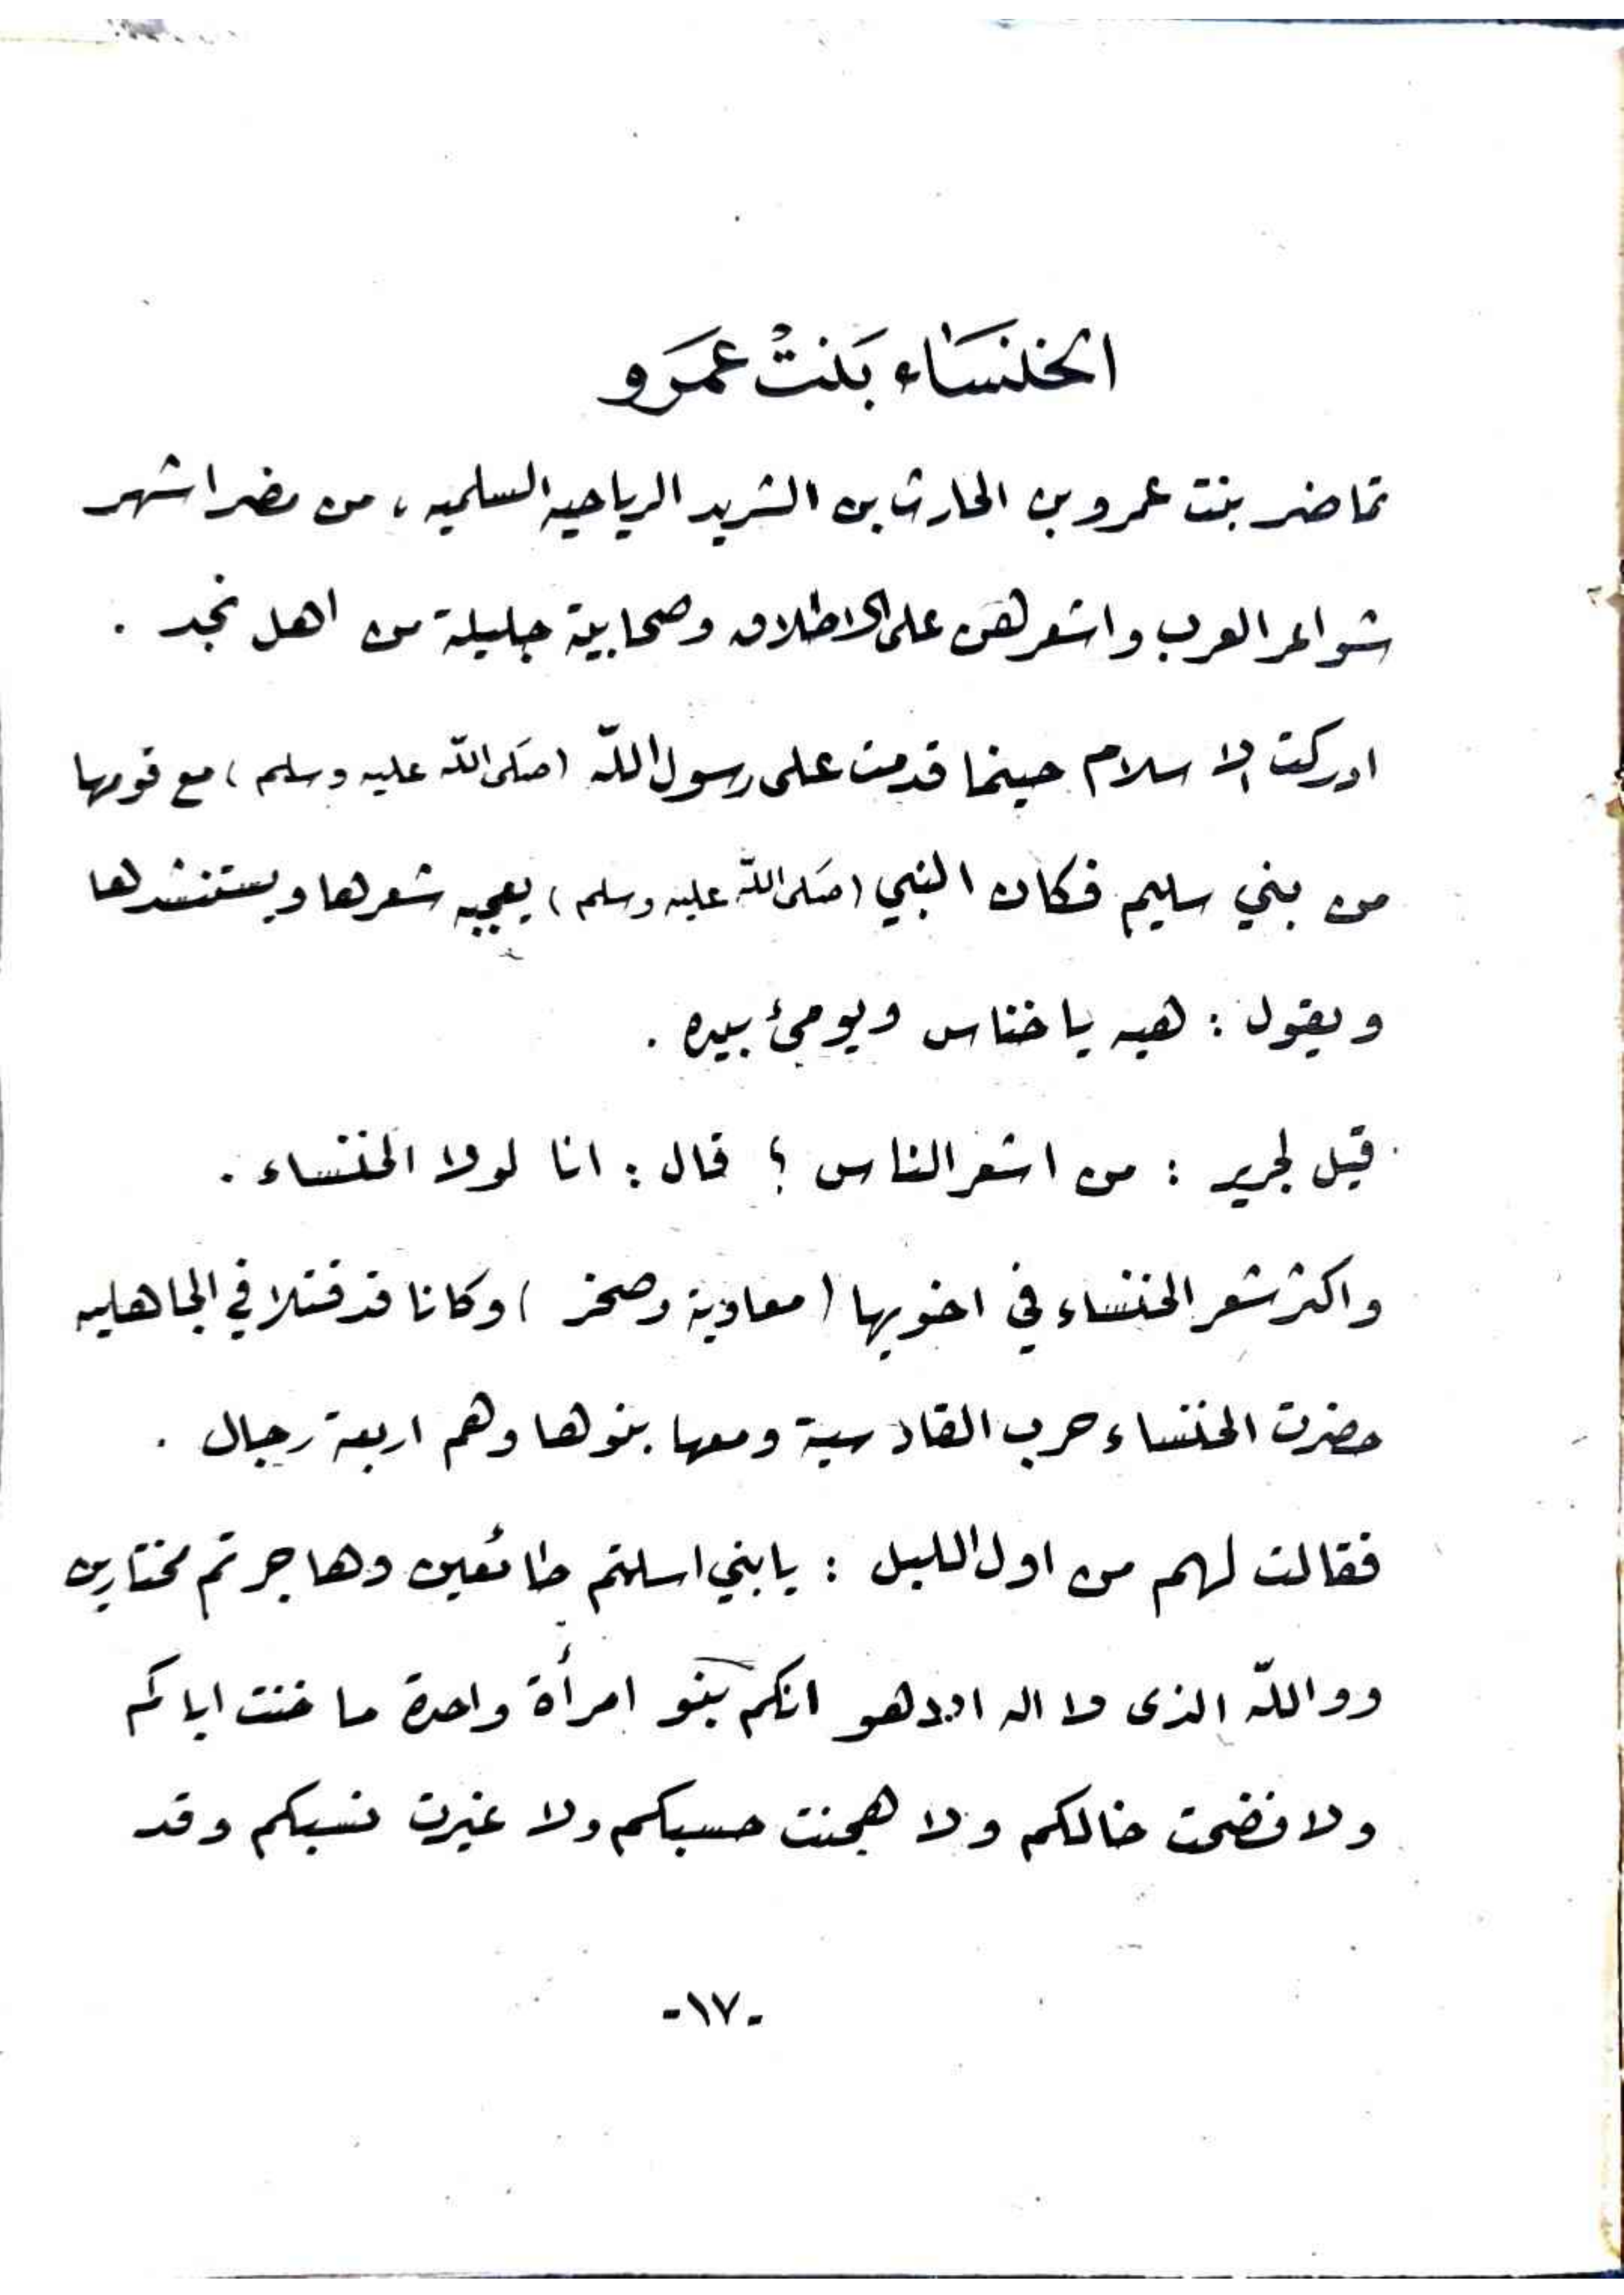 الخنساء بنت عمرو
تماضر بنت عمرو بن الحارث بن الشريد الرياحيه السلميه، من مضر اشهر
شواعر العرب واشعرهن على الاطلاق وصحابية جليلة من اهل نجد .
ادركت الاسلام حينما قدمت على رسول اللّه (صلى اللّه عليه وسلم) مع قومها
من بني سليم فكان النبي (صلى اللّه عليه وسلم) يعجبه شعرها ويستنشدها
ويقول : هيه يا خناس ويومئ بيده .
قيل لجرير : من اشعر الناس ؟ قال : انا لولا الخنساء .
واكثر شعر الخنساء في اخويها (معاوية وصخر) وكانا قد قتلا في الجاهليه
حضرت الخنساء حرب القادسية ومعها بنوها وهم اربعة رجال .
فقالت لهم من اول الليل : يا بني اسلمتم طائعين وهاجرتم مختارين
وواللّه الذى لا اله الا هو انكم بنو امرأة واحدة ما خنت اباكم
ولا فضحت خالكم ولا هجنت حسبكم ولا غيرت نسبكم وقد
-١٧-